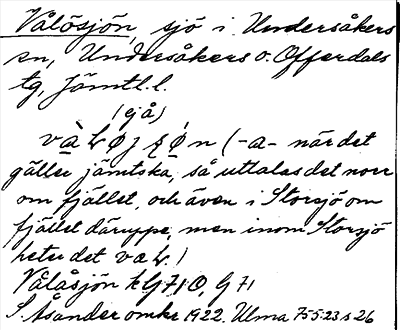 Vålösjön, sjö i Undersåkers
sn, Undersåkers o. Offerdals
tg, Jämtl. l.
(ejå)
(-a- när det
gäller jämtska, så uttalas det norr
om fjället, och även i Storsjö om
fjället däruppe, men inom Storsjö
heter det
Vålåsjön kG 71 O, G 71
S. Åsander omkr 1922. Ulma 755:23 s 26